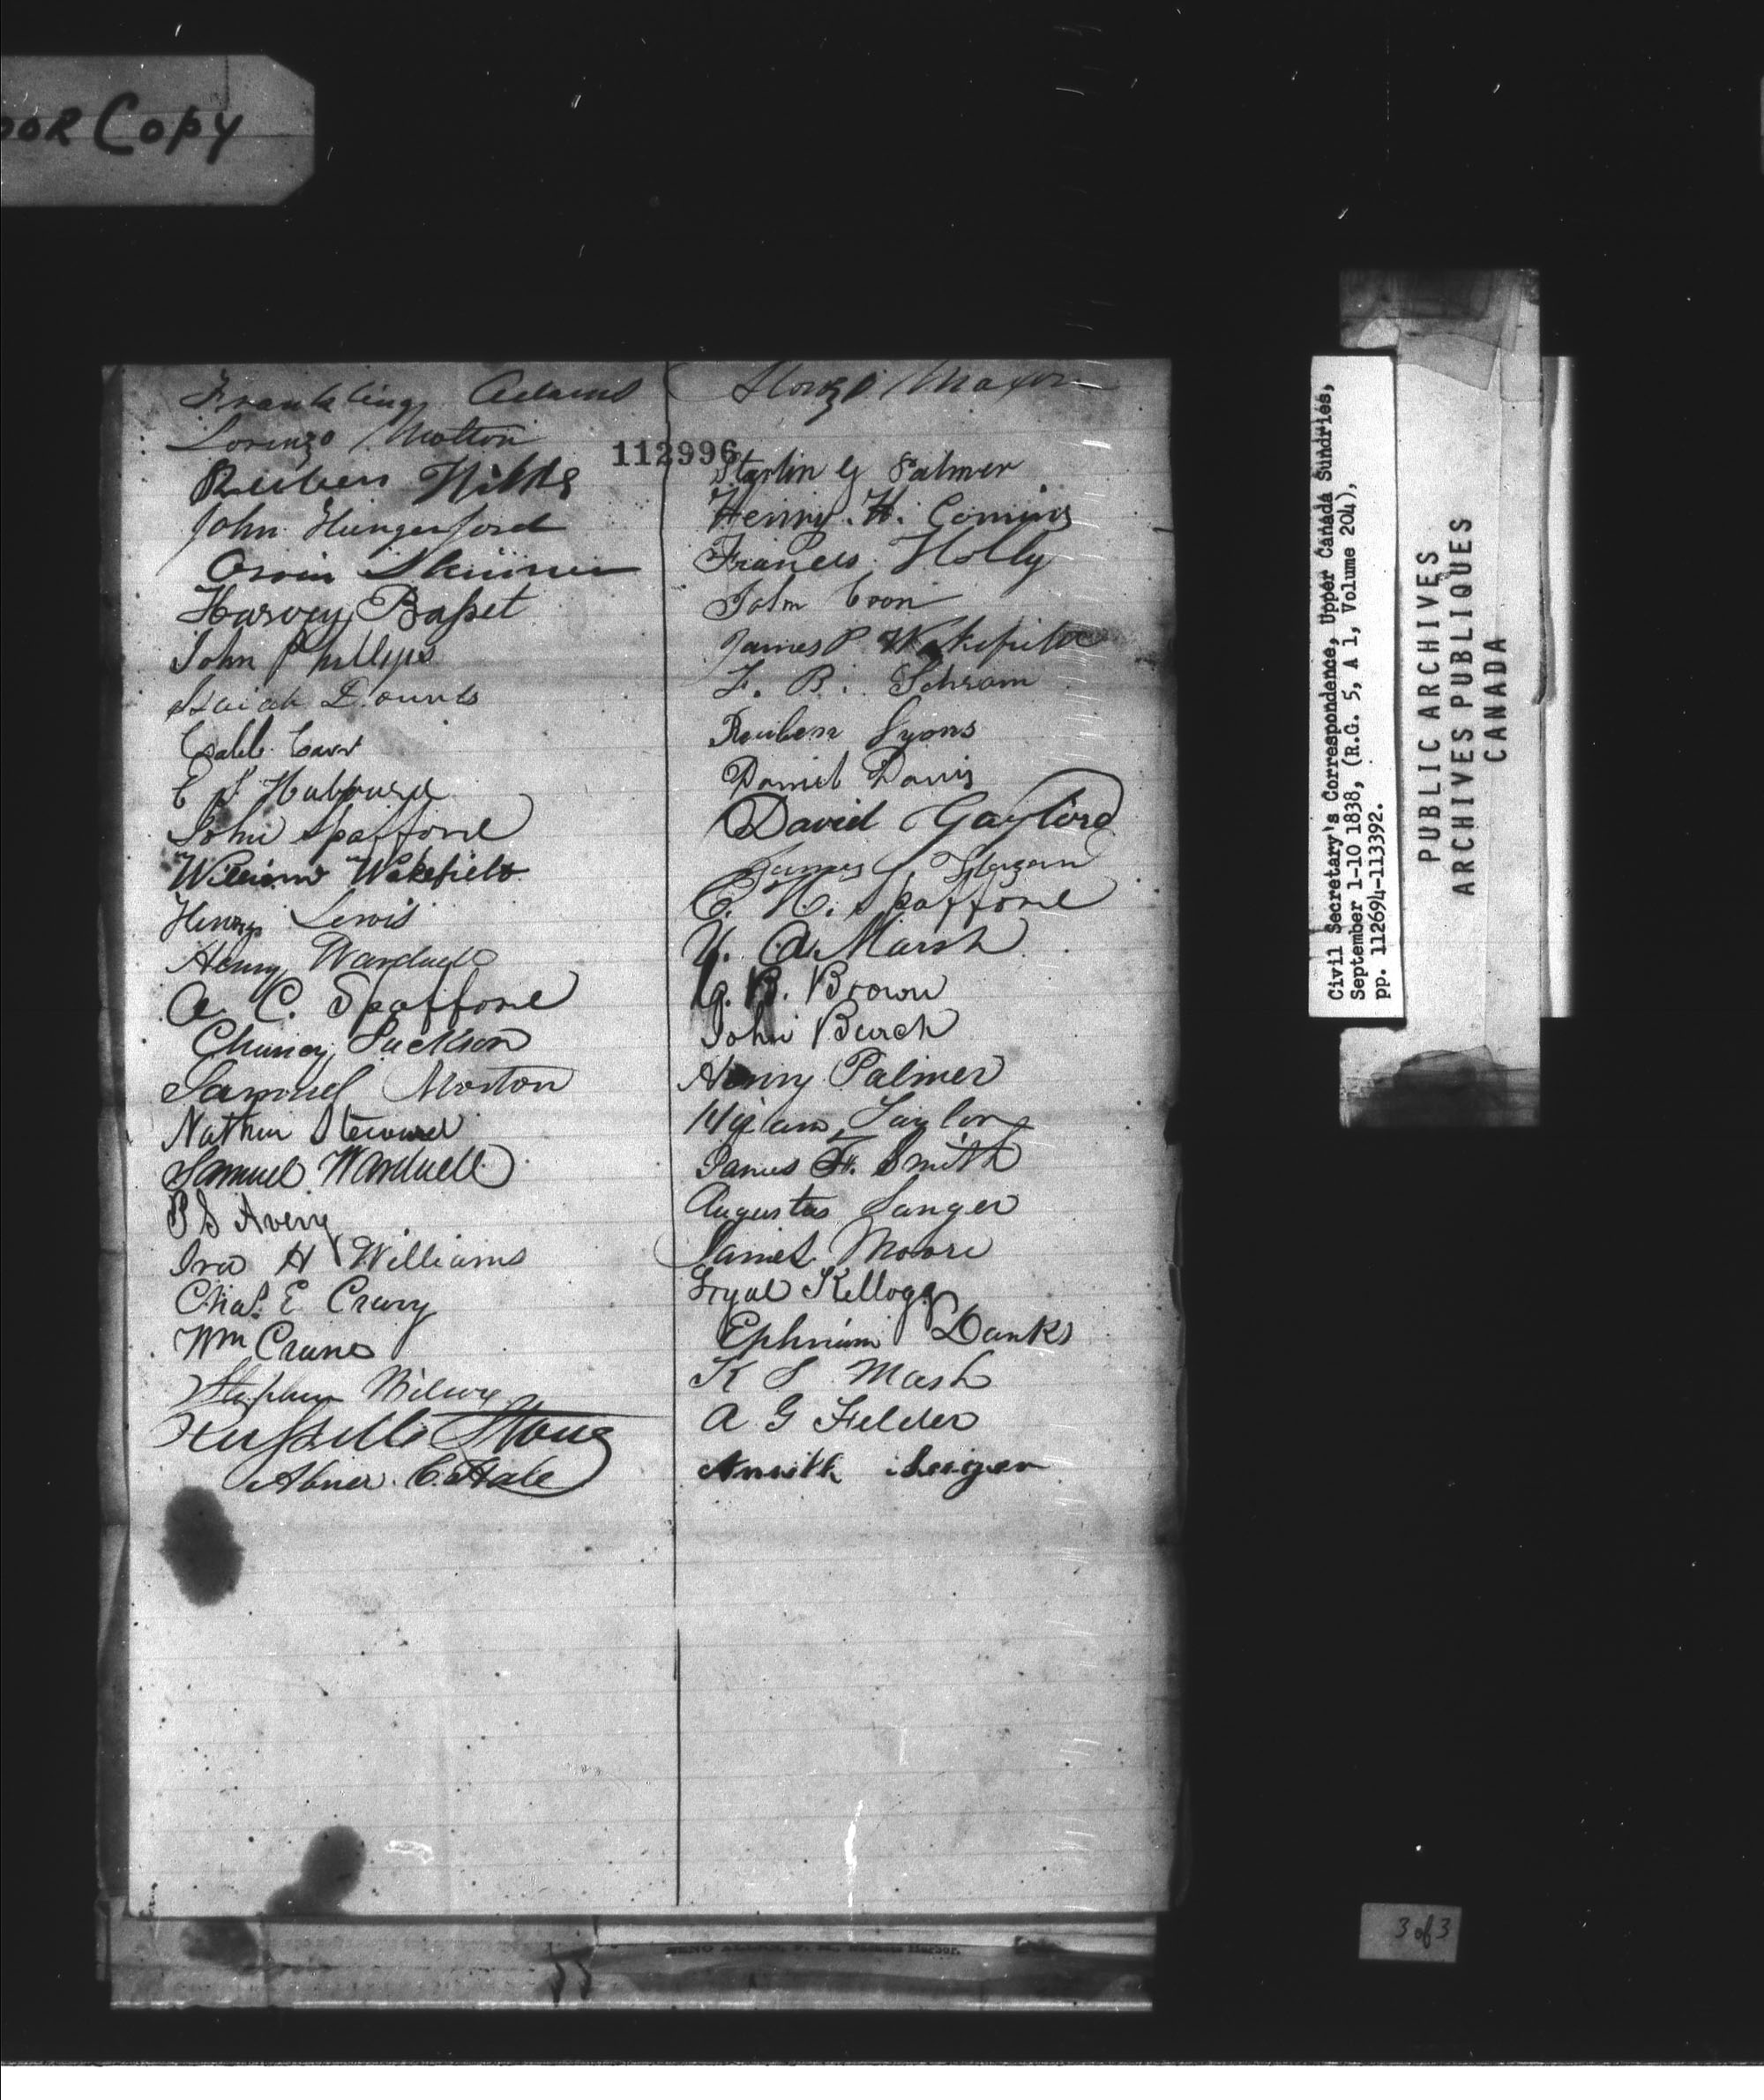 OOR Copy
Frankling Adams
Lorenzo Motton
Reuben
John Hungerford
Orvin Skinner
Harvey Baſset
John Phillyps
Isaiah Dounds
Caleb Carr
E Hubbard
John Spafford
William Wakefield
Henry Lewis
Henry Wardwell
A C. Spafford
Chuncy Jackson
Samuel Morton
Nathan Steward
Samuel Wardwell
P S Avery
Ira H Williams
Chas. E Crary
Wm Crane
Stephen Wilcox
Ruſsell
Abner C. Hale
Alonzo Maxon
112996
Starlin G Palmer
Henry. H. Comins
Frances Holly
John Coon
James P Wakefield
F. B. Schram
Reuben Lyons
Daniel Davis
David Gaylord
James
C. N. Spafford
A. Marsh
G. B. Brown
John Burch
Henry Palmer
Hiram Taylor
James F. Smith
Augustus Sanger
James Moore
Loyal Kellogg
Ephriam Danks
K S Mash
A G Felder
Civil Secretary's Correspondence, Upper Canada Sundries,
September 1-10 1838, (R.G. 5, A 1, Volume 204),
pp. 112694-113392.
PUBLIC ARCHIVES
ARCHIVES PUBLIQUES
CANADA
3 of 3